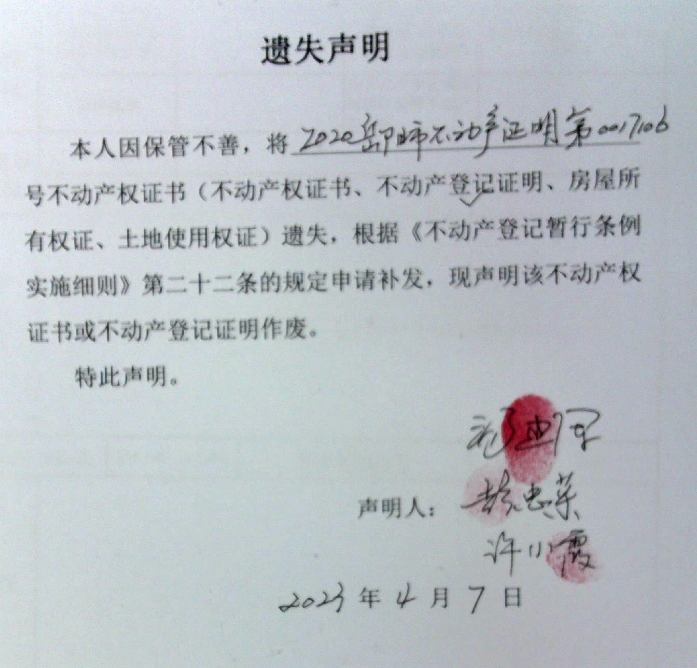 遗失声明
本人因保管不善，将 2020 不动产证明第0017106
号不动产权证书（不动产权证书、不动产登记证明、房屋所
有权证、土地使用权证）遗失，根据《不动产登记暂行条例
实施细则》第二十二条的规定申请补发，现声明该不动产权
证书或不动产登记证明作废。
特此声明。
声明人：
许小霞
2023年4月7日